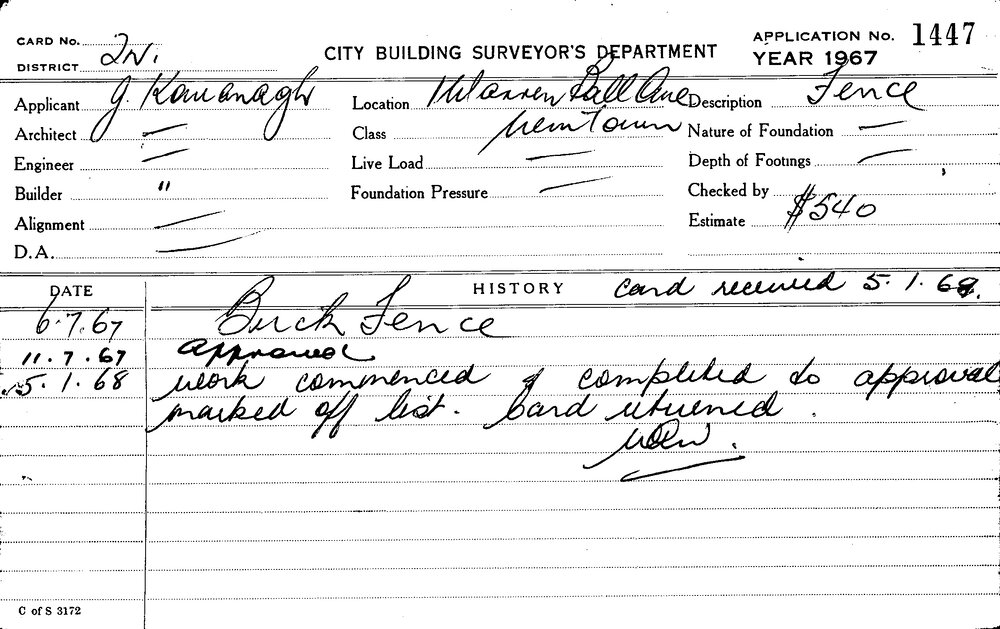 CARD No.
DISTRICT 2N.
CITY BUILDING SURVEYOR'S DEPARTMENT
APPLICATION No. 1447
YEAR 1967
Applicant J. Kavanagh
Location Warren Ball Ave
Newtown
Description Fence
Architect —
Class
Nature of Foundation —
Engineer —
Live Load —
Depth of Footings —
Builder "
Foundation Pressure —
Checked by
Alignment —
Estimate $540
D.A. —
DATE
HISTORY card received 5.1.68.
6.7.67 Brick Fence
11.7.67 approved
5.1.68 work commenced & completed to approval
marked off list. Card returned.
C of S 3172